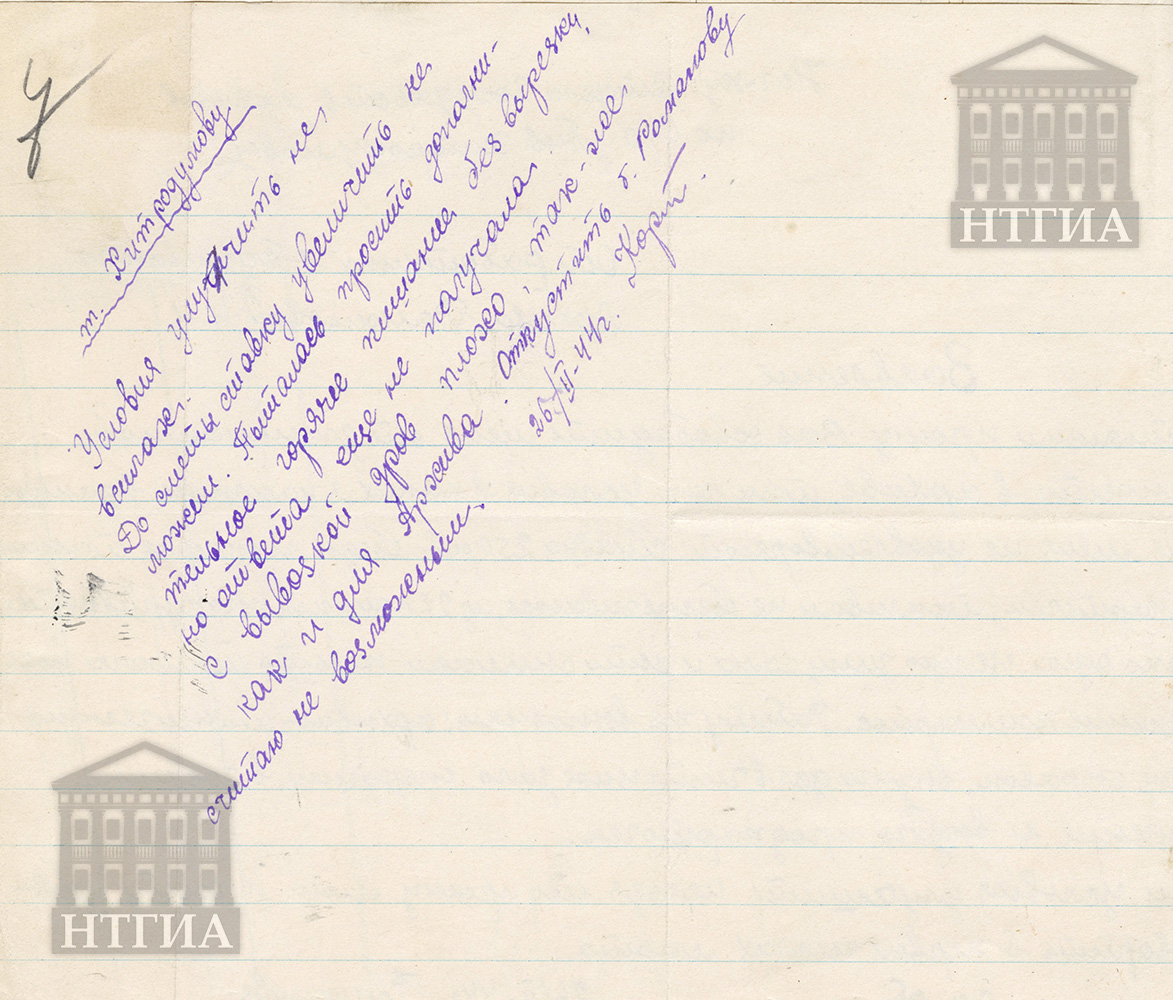 т. Хитродумову
Условия улучшить не,
в силах.
До сметы ставку увеличить не
можем. Пыталась просить дополни-
тельное горячее питание без вырезки,
но ответа еще не получала.
С вывозкой дров плохо, так-же
как и для Архива. Откустить б. Романову
считаю не возможным.
26/II-44г.
НТГИА
НТГИА